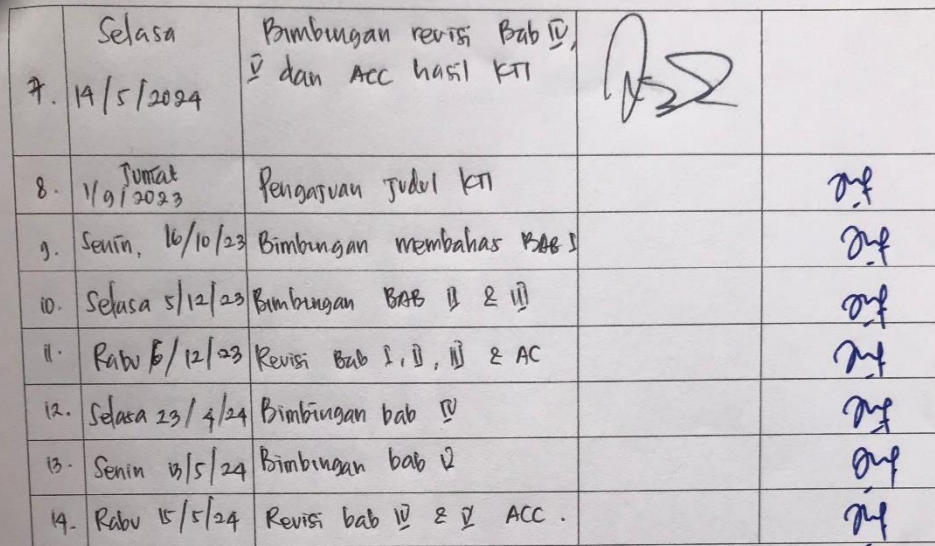 Selasa
Bimbingan revisi Bab IV,
7. 14/5/2024
V dan ACC hasil KTI
8. Jumat
1/9/2023
Pengajuan Judul KTI
9. Senin, 16/10/23 Bimbingan membahas BAB I
10. Selasa 5/12/23 Bimbingan BAB II & III
11. Rabu 6/12/23 Revisi Bab I, II, III & AC
12. Selasa 23/4/24 Bimbingan bab IV
13. Senin 13/5/24 Bimbingan bab V
14. Rabu 15/5/24 Revisi bab IV & V ACC.